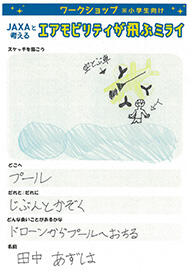 ワークショップ ※小学生向け
JAXAと考える エアモビリティが飛ぶミライ
スケッチを描こう
空とぶ車
どこへ
プール
だれと / だれに
じぶんとかぞく
どんな良いことがあるかな
ドローンからプールへおちる
名前
田中 あずは